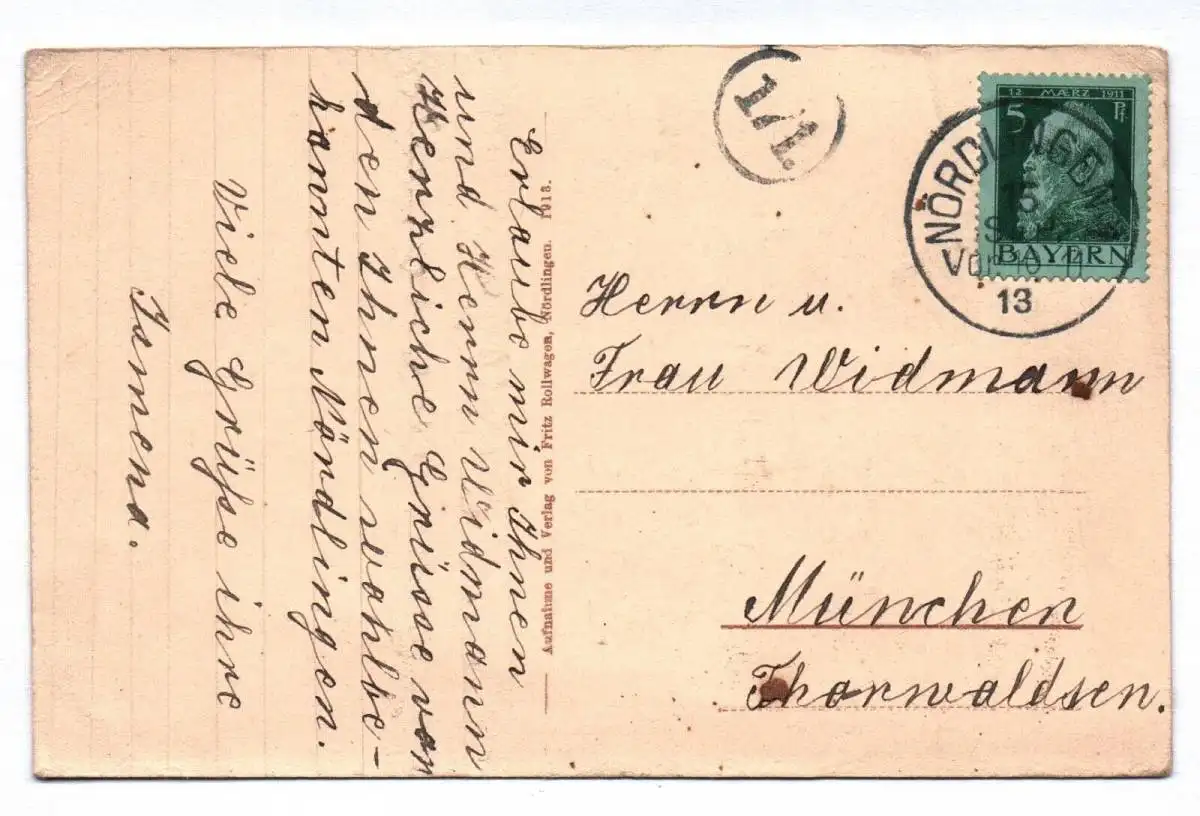 Erlaube mir Ihnen
und Herrn Widmann
Herzliche Grüsse von
den Ihnen wohlbe-
kannten Nördlingen.
Viele Grüße ihre
Aufnahme und Verlag von Fritz Rollwagen, Nördlingen. 1913.
1/1.
12 MÆRZ 1911
5 Pf
BAYERN
NÖRDLINGEN
Vor. 10-11
13
Herrn u.
Frau Widmann
München
Thorwaldsen.